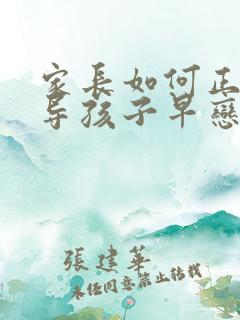 家長如何正
导孩子早戀
張建華
未经同意禁止转载